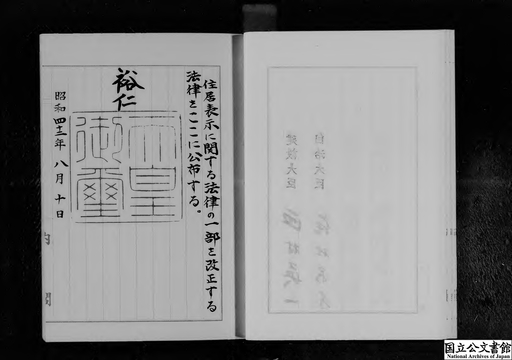 住居表示に関する法律の一部を改正する
法律をここに公布する。
裕仁
天皇
御璽
昭和四十二年八月十日
自治大臣
建設大臣
国立公文書館
National Archives of Japan